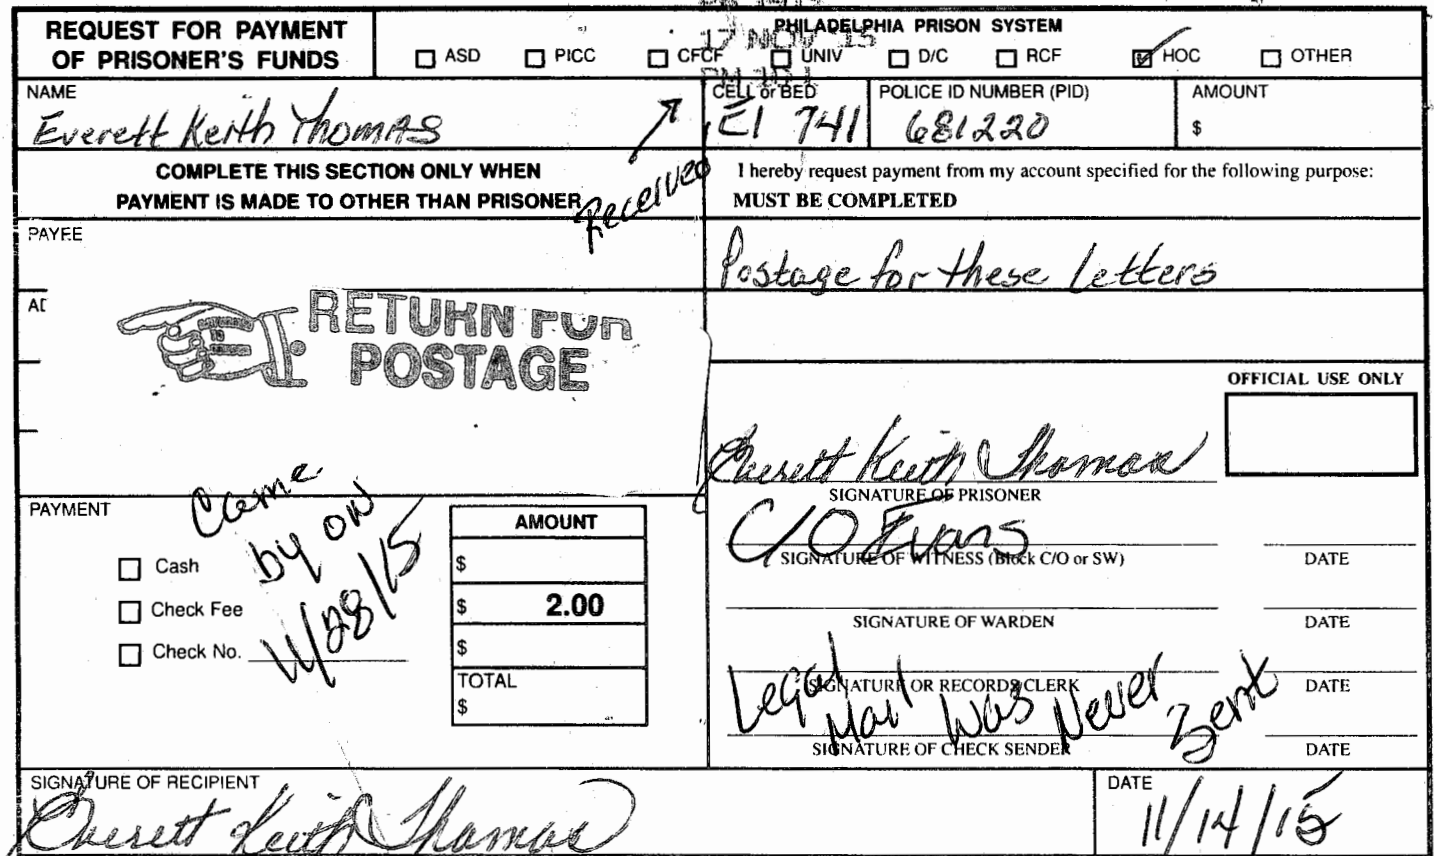 REQUEST FOR PAYMENT
OF PRISONER'S FUNDS
PHILADELPHIA PRISON SYSTEM
17 NOV 15
ASD PICC CFCF UNIV D/C RCF HOC OTHER
NAME
Everett Keith Thomas
CELL or BED
E1 741
POLICE ID NUMBER (PID)
681220
AMOUNT
$
Received
COMPLETE THIS SECTION ONLY WHEN
PAYMENT IS MADE TO OTHER THAN PRISONER
I hereby request payment from my account specified for the following purpose:
MUST BE COMPLETED
PAYEE
Postage for these letters
RETURN FOR
POSTAGE
OFFICIAL USE ONLY
Everett Keith Thomas
SIGNATURE OF PRISONER
C/O Evans
SIGNATURE OF WITNESS (Block C/O or SW)
DATE
SIGNATURE OF WARDEN
DATE
SIGNATURE OR RECORDS CLERK
DATE
Legal Mail Was Never Sent
SIGNATURE OF CHECK SENDER
DATE
PAYMENT
Came
by on
11/28/15
Cash
Check Fee
Check No.
AMOUNT
$
$ 2.00
$
TOTAL
$
SIGNATURE OF RECIPIENT
Everett Keith Thomas
DATE
11/14/15